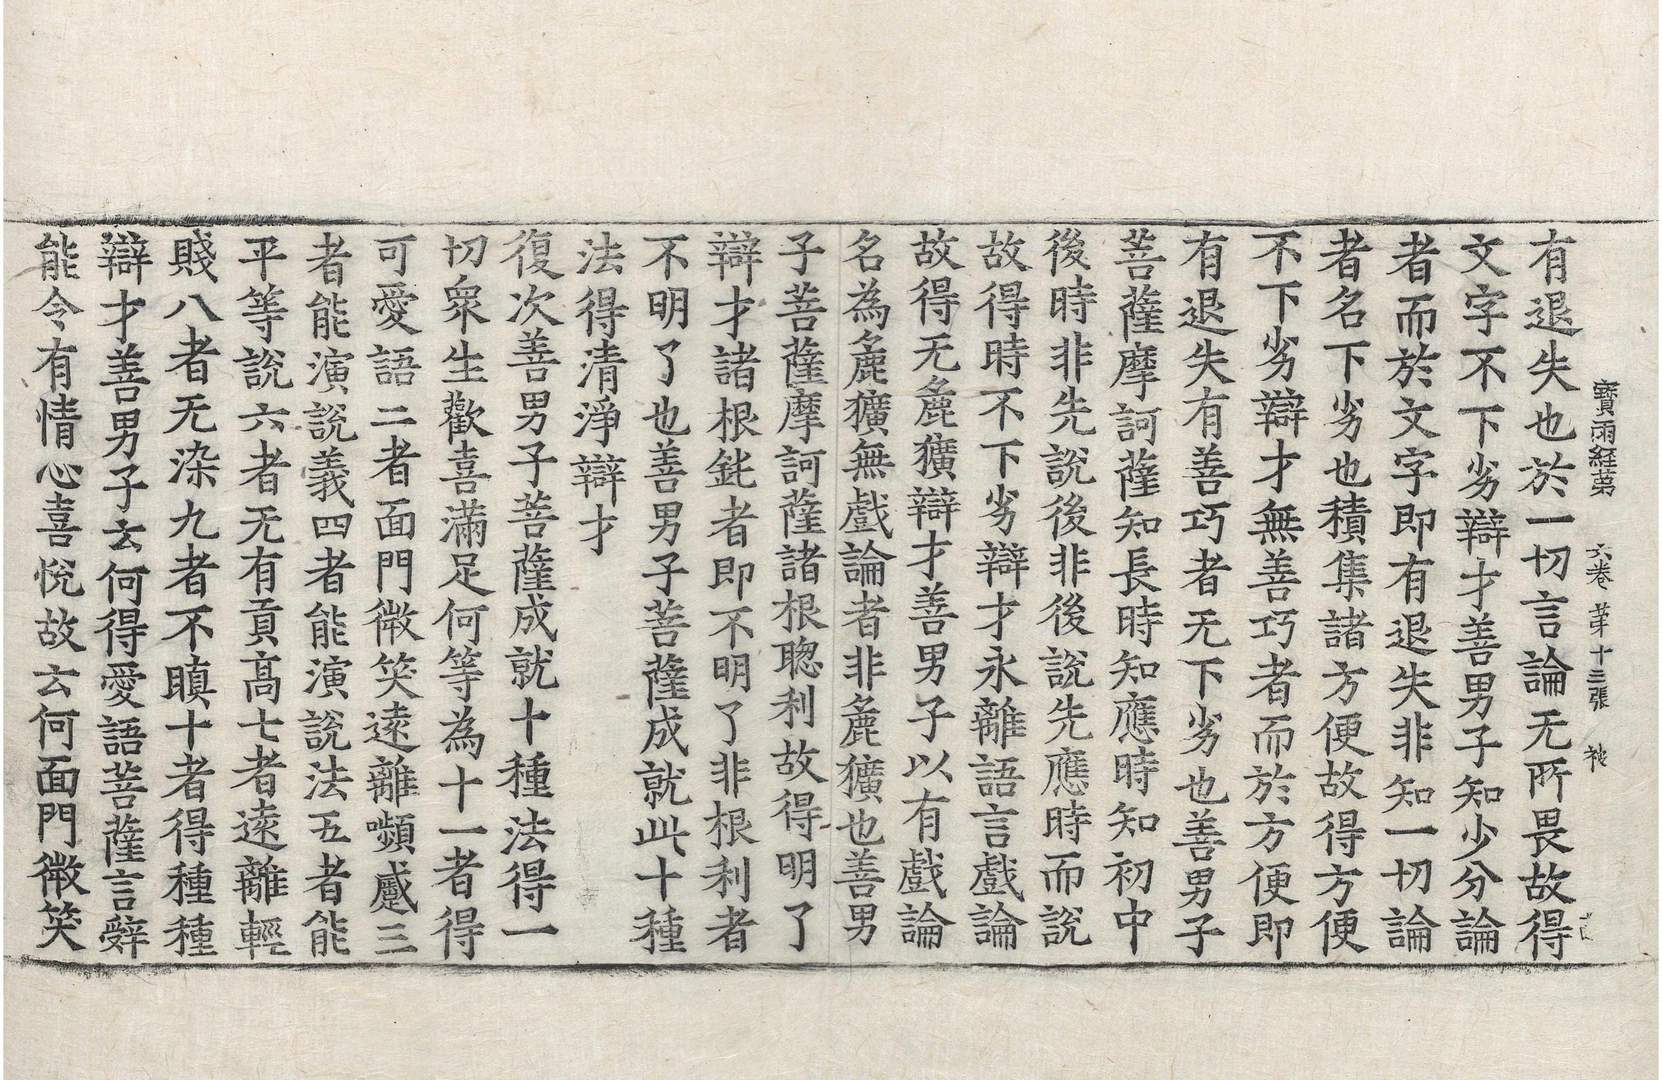 寶雨經第 六卷 第十三張 被
有退失也於一切言論无所畏故得
文字不下劣辯才善男子知少分論
者而於文字即有退失非知一切論
者名下劣也積集諸方便故得方便
不下劣辯才無善巧者而於方便即
有退失有善巧者无下劣也善男子
菩薩摩訶薩知長時知應時知初中
後時非先說後非後說先應時而說
故得時不下劣辯才永離語言戲論
故得无麁獷辯才善男子以有戲論
名為麁獷無戲論者非麁獷也善男
子菩薩摩訶薩諸根聰利故得明了
辯才諸根鈍者即不明了非根利者
不明了也善男子菩薩成就此十種
法得清淨辯才
復次善男子菩薩成就十種法得一
切衆生歡喜滿足何等為十一者得
可愛語二者面門微笑遠離嚬蹙三
者能演說義四者能演說法五者能
平等說六者无有貢高七者遠離輕
賤八者无染九者不瞋十者得種種
辯才善男子云何得愛語菩薩言辤
能令有情心喜悅故云何面門微笑